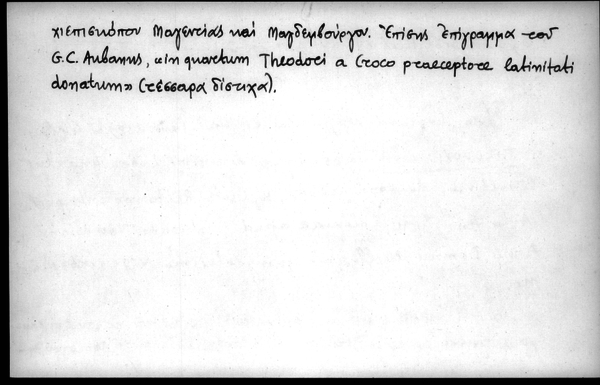 χιεπισκόπου Μαγεντίας καί Μαγδεμβούργου. Ἐπίσης ἐπίγραμμα τοῦ
G.C. Aubanus, «in quartum Theodori a Croco praeceptore latinitati
donatum» (τέσσαρα δίστιχα).